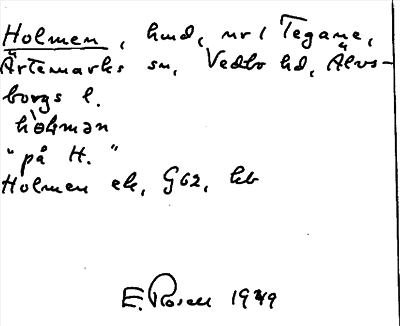 Holmen, hmd, nr 1 Tegane,
Ärtemarks sn, Vedbo hd, Älvs-
borgs l.
hòlmən
"på H."
Holmen ek, G62, kb
E. Rosell 1949